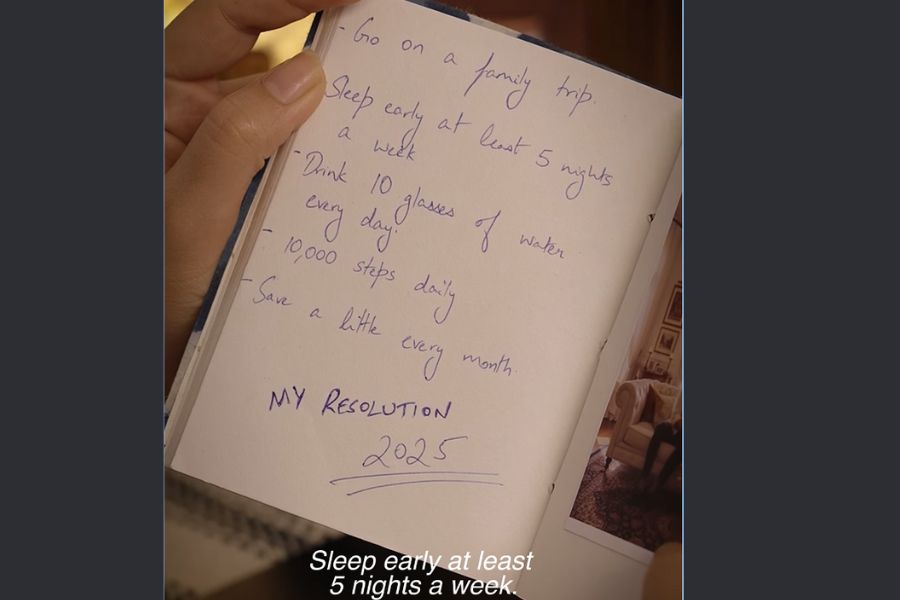 - Go on a family trip.
Sleep early at least 5 nights
a week
- Drink 10 glasses of water
every day.
- 10,000 steps daily
- Save a little every month.
MY RESOLUTION
2025
Sleep early at least
5 nights a week.